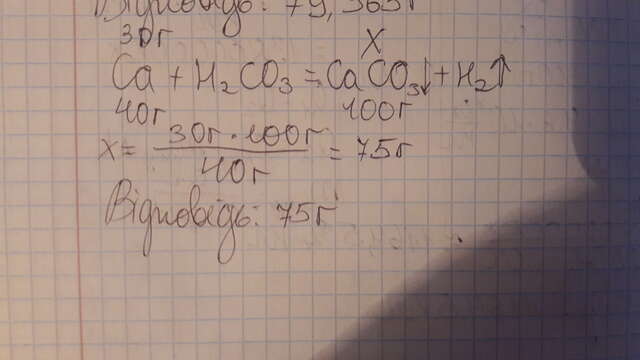 Відповідь: 79,365г
30г X
Ca + H₂CO₃ = CaCO₃↓ + H₂↑
40г 100г
X = 30г · 100г / 40г = 75г
Відповідь: 75г